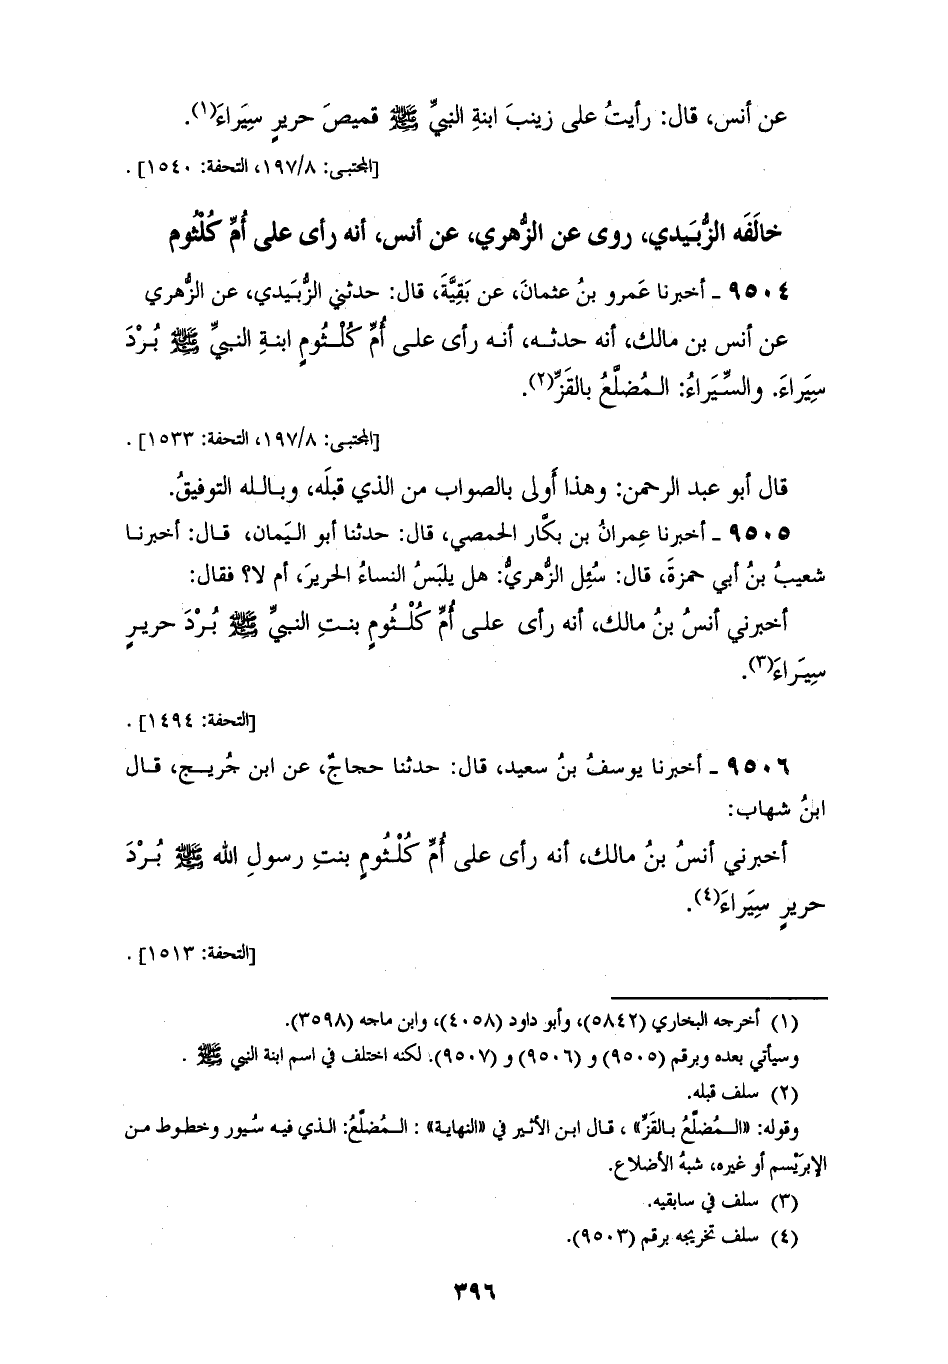 عن أنس، قال: رأيتُ على زينبَ ابنةِ النبيِّ ﷺ قميصَ حريرٍ سِيَراءَ(١).
[المجتبى: ١٩٧/٨، التحفة: ١٥٤٠] .
خالَفَه الزُّبَيدي، روى عن الزُّهري، عن أنس، أنه رأى على أُمِّ كُلْثُوم
٩٥٠٤ ـ أخبرنا عَمرو بنُ عثمانَ، عن بَقِيَّةَ، قال: حدثني الزُّبَيدي، عن الزُّهري
عن أنس بن مالك، أنه حدثه، أنه رأى على أُمِّ كُلْثُومٍ ابنةِ النبيِّ ﷺ بُرْدَ
سِيَراءَ. والسِّيَراءُ: المُضلَّعُ بالقَزِّ(٢).
[المجتبى: ١٩٧/٨، التحفة: ١٥٣٣] .
قال أبو عبد الرحمن: وهذا أَولى بالصواب من الذي قبلَه، وبالله التوفيقُ.
٩٥٠٥ ـ أخبرنا عِمرانُ بن بكَّار الحمصي، قال: حدثنا أبو اليَمان، قال: أخبرنا
شعيبُ بنُ أبي حمزةَ، قال: سُئِل الزُّهريُّ: هل يلبَسُ النساءُ الحريرَ، أم لا؟ فقال:
أخبرني أنسُ بنُ مالك، أنه رأى على أُمِّ كُلْثُومٍ بنتِ النبيِّ ﷺ بُرْدَ حريرٍ
سِيَراءَ(٣).
[التحفة: ١٤٩٤] .
٩٥٠٦ ـ أخبرنا يوسفُ بنُ سعيد، قال: حدثنا حجاجٌ، عن ابن جُريج، قال
ابنُ شهاب:
أخبرني أنسُ بنُ مالك، أنه رأى على أُمِّ كُلْثُومٍ بنتِ رسولِ الله ﷺ بُرْدَ
حريرٍ سِيَراءَ(٤).
[التحفة: ١٥١٣] .
(١) أخرجه البخاري (٥٨٤٢)، وأبو داود (٤٠٥٨)، وابن ماجه (٣٥٩٨).
وسيأتي بعده وبرقم (٩٥٠٥) و (٩٥٠٦) و (٩٥٠٧). لكنه اختلف في اسم ابنة النبي ﷺ .
(٢) سلف قبله.
وقوله: «المُضلَّعُ بالقَزِّ» ، قال ابن الأثير في «النهاية» : المُضلَّعُ: الذي فيه سُيور وخطوط من
الإبرَيْسم أو غيره، شبهُ الأضلاع.
(٣) سلف في سابقيه.
(٤) سلف تخريجه برقم (٩٥٠٣).
٣٩٦